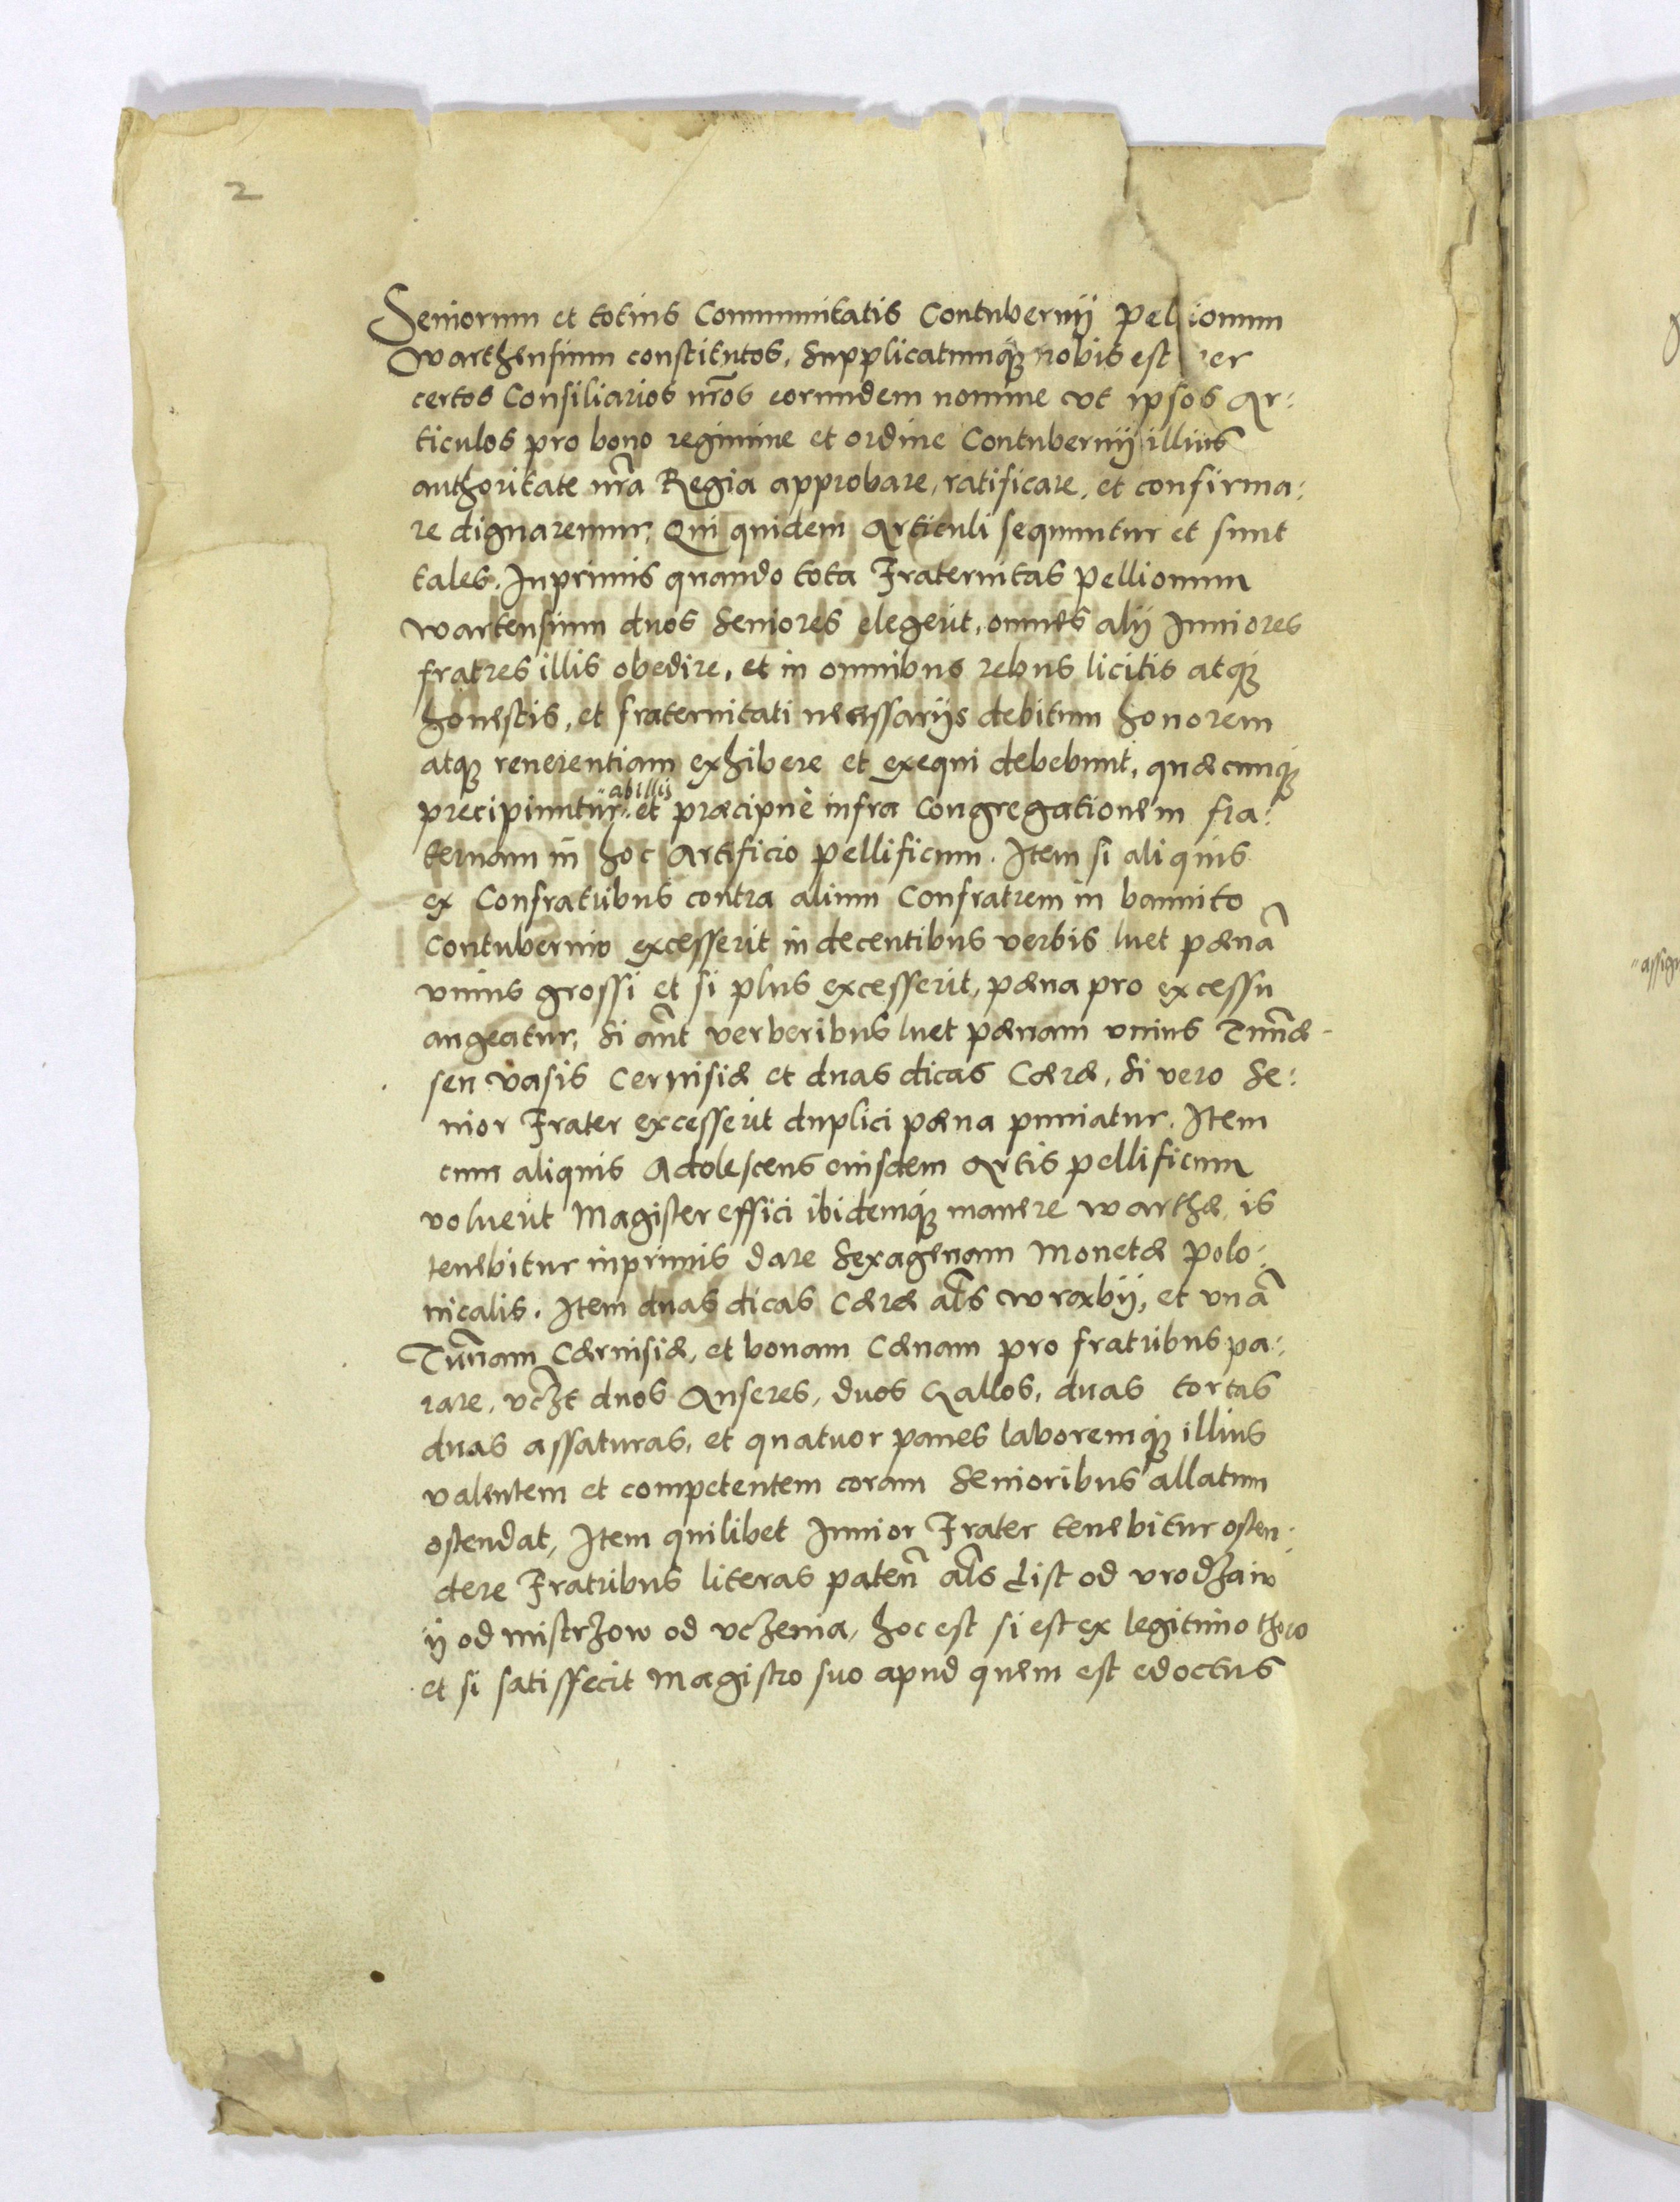 2
Seniorum et totius Communitatis Contubernij Pellionum
Warthensium constitutos, Supplicatumq́ꝫ nobis est per
certos Consiliarios nr̃os eorundem nomine vt ipsos Ar:
ticulos pro bono regimine et ordine Contubernij illius
authoritate nr̃a Regia approbare, ratificare, et confirma:
re dignaremur, Qui quidem Articuli sequuntur et sunt
tales. Inprimis quando tota Fraternitas Pellionum
Wartensium duos Seniores elegerit, omnes alij Iuniores
fratres illis obedire, et in omnibus rebus licitis atq́ꝫ
honestis, et fraternitati necessarijs debitum honorem
atqꝫ reuerentiam exhibere et exequi debebunt, quæcunq́ꝫ
ab illis
precipiuntur. et præcipuè infra Congregationem fra:
ternam in hoc Artificio pellificum. Item si aliquis
ex Confratribus contra alium Confratrem in bannito
Contubernio excesserit in decentibus verbis luet pænã
vnius grossi et si plus excesserit, pæna pro excessu
augeatur, Si aũt verberibus luet pænam vnius Tunnæ
seu vasis Ceruisiæ et duas dicas Cæræ, Si vero Se:
nior Frater excesserit duplici pæna puniatur. Item
cum aliquis Adolescens eiusdem Artis pellificum
voluerit Magister effici ibidemq́ꝫ manere Warthæ, is
tenebitur inprimis dare Sexagenam Monetæ Polo:
nicalis. Item duas dicas Cæræ al̃s wroxbij, et vnã
Tun̄am Cæruisiæ, et bonam Cænam pro fratribus pa:
rare, vcʒt duos Anseres, duos Gallos, duas tortas
duas assaturas, et quatuor panes laboremq́ꝫ illius
valentem et competentem coram Senioribus allatum
ostendat, Item quilibet Iunior Frater tenebitur osten:
dere Fratribus literas paten̄ al̃s List od vrodʒaiw
ij od mistrʒow od vcʒenia, hoc est si est ex legitimo thoro
et si satisfecit Magistro suo apud quem est edoctus